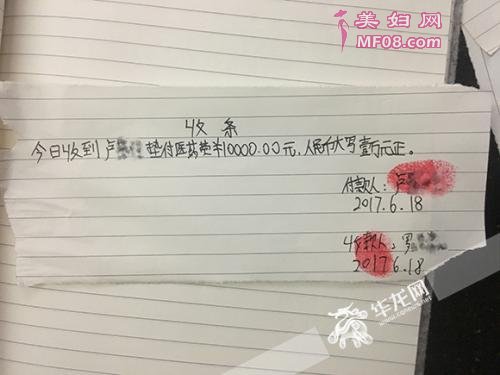 美妇网
MF08.com
收条
今日收到卢 垫付医药费¥10000.00元，人民币大写壹万元正。
付款人：卢
2017.6.18
收款人：罗
2017.6.18
华龙网
www.cqnews.net